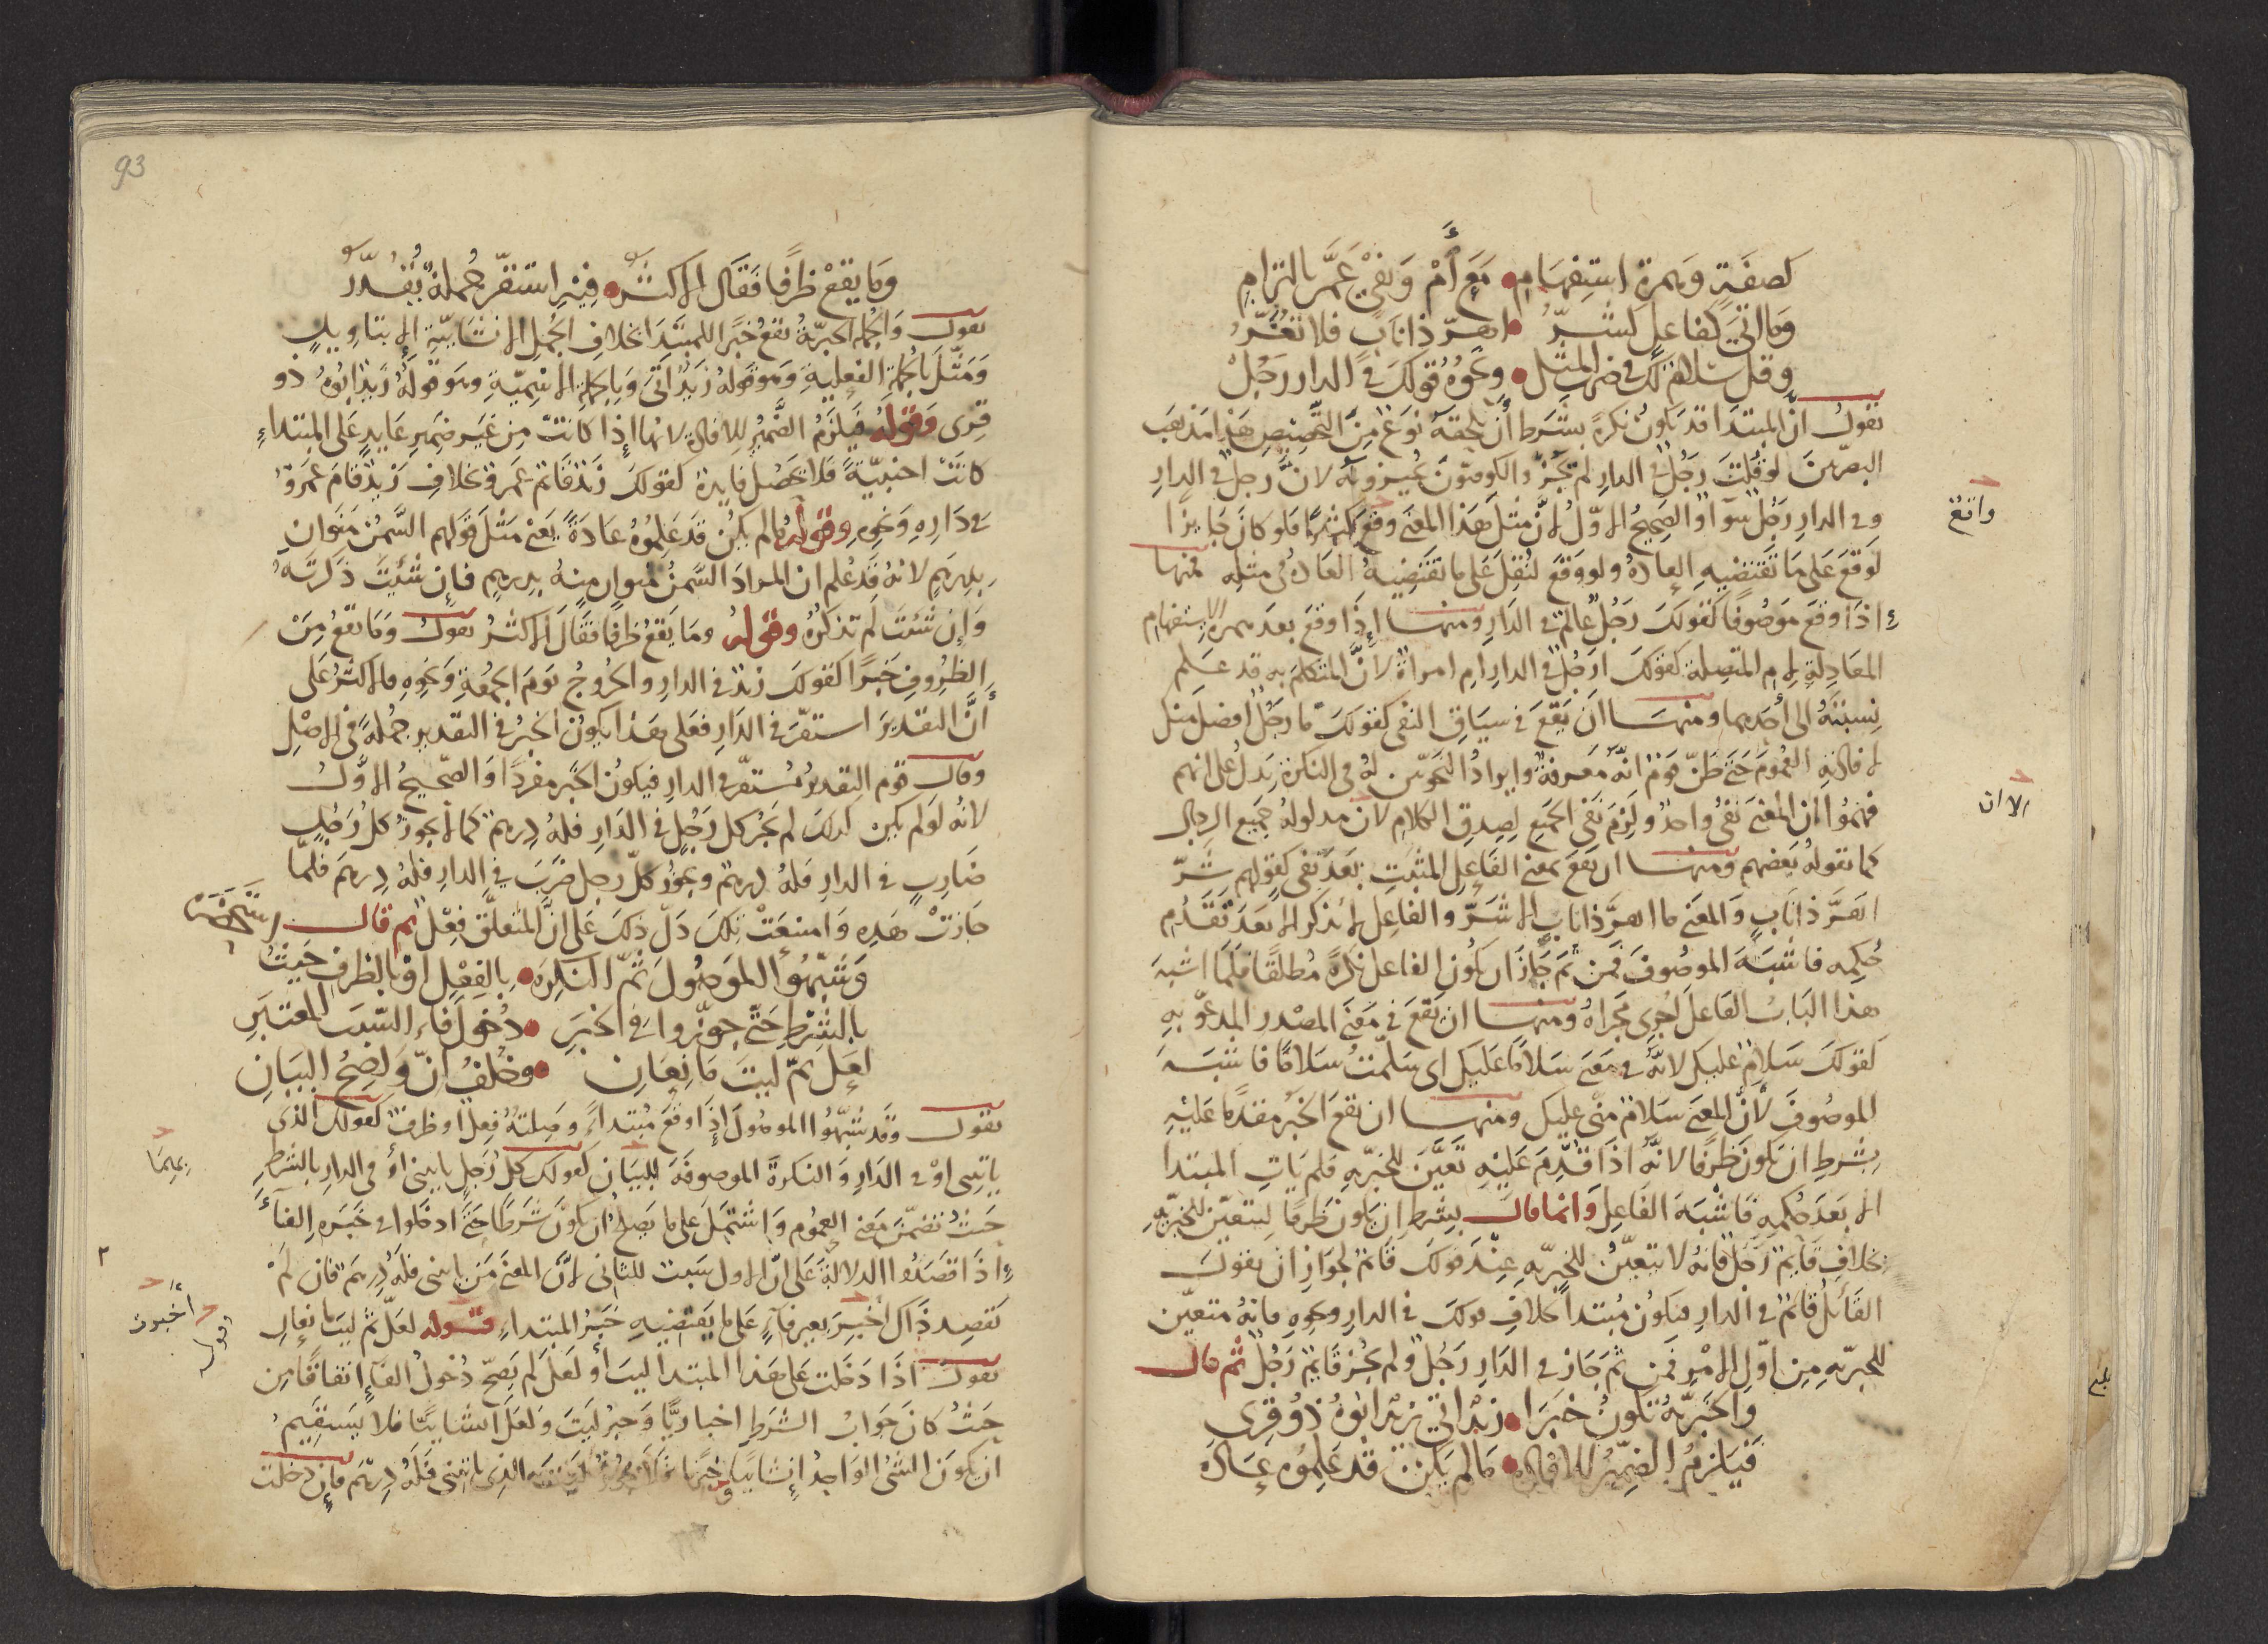 كصفة وهمزة استفهام مع أم ونفي عم بالتزام
وما أتى كفاعل كشر أهر ذا ناب فلا تغتر
وقل سلام لك في ضرب المثل ونحوه قولك في الدار رجل
نقول ان المبتدا قد يكون نكرة بشرط أن يلحقه نوع من التخصيص هذا مذهب
البصريين لو قلت رجل في الدار لم يجز والكوفيون يجيزونه لان رجل في الدار
وفي الدار رجل سواء والصحيح الاول لان مثل هذا المعنى وقع كثيرا فلو كان جايزا
لوقع على ما تقتضيه العادة ولو وقع لنقل على ما تقتضيه العادة في مثله فمنها
اذا وقع موصوفا كقولك رجل عالم في الدار ومنها إذا وقع بعد همزة الاستفهام
المعادلة لام المتصلة كقولك ارجل في الدار ام امراة لان المتكلم به قد علم
نسبته الى أحدهما ومنها ان يقع في سياق النفي كقولك ما رجل افضل منك
لافادته العموم حتى ظن قوم انه معرفة وايراد النحويين له في النكرة يدل على انهم
فهموا ان المعنى نفي واحد ولزم نفي الجميع لصدق الكلام لان مدلوله جميع الرجال
كما تقوله بعضهم ومنها ان يقع بمعنى الفاعل المثبت بعد نفي كقولهم شر
اهر ذا ناب والمعنى ما اهر ذا ناب الا شر والفاعل لا يذكر الا بعد تقدم
حكمه فاشبه الموصوف فمن ثم جاز ان يكون الفاعل نكرة مطلقا فلما اشبه
هذا الباب الفاعل اجري مجراه ومنها ان يقع في معنى المصدر المدعو به
كقولك سلام عليكم لانه في معنى سلاما عليكم اي سلمت سلاما فاشبه
الموصوف لان المعنى سلام مني عليكم ومنها ان يقع الخبر مقدما عليه
بشرط ان يكون ظرفا لانه اذا قدم عليه تعين للخبريه فلم يات المبتدا
الا بعد حكمه فاشبه الفاعل وانما قال بشرط ان يكون ظرفا لتعين للخبريه
بخلاف قايم رجل فانه لا يتعين للخبريه عند قولك قايم لجواز ان يقول
القائل قايم في الدار فيكون مبتدا بخلاف قولك في الدار ونحوه فانه متعين
للخبريه من اول الامر فمن ثم جاز في الدار رجل ولم يجز قايم رجل ثم قال
والخبرية تكون خبرا زيد اتى زيد ابوه ذو قرى
فيلزم الضمير للافادة ما لم يكن قد علموه عادة
واقع
الا ان
93
وما يقع ظرفا فقال الاكثر فيه استقر جملة يقدر
نقول والجملة الخبرية تقع خبرا للمبتدا بخلاف الجمل الانشائية الا بتاويل
ومثل بالجملة الفعلية وهو قوله زيد اتى وبالجملة الاسمية وهو قوله زيد ابوه ذو
قرى وقوله فيلزم الضمير للافادة لانها إذا كانت من غير ضمير عايد على المبتداء
كانت اجنبية فلا تحصل فايدة كقولك زيد قائم عمرو بخلاف زيد قام عمرو
في داره ونحوه وقوله ما لم يكن قد علموه عادة يعني مثل قولهم السمن منوان
بدرهم لانه قد علم ان المراد السمن منوان منه بدرهم فإن شئت ذكرته
وإن شئت لم تذكره وقوله وما يقع ظرفا فقال الاكثر نقول وما يقع من
الظروف خبرا كقولك زيد في الدار والخروج يوم الجمعة ونحوه فالاكثر على
أن التقدير استقر في الدار فعلى هذا يكون الخبر في التقدير جملة في الاصل
وقال قوم التقدير مستقر في الدار فيكون الخبر مفردا والصحيح الاول
لانه لو لم يكن كذلك لم يجز كل رجل في الدار فله درهم كما لا يجوز كل رجل
ضارب في الدار فله درهم ويجوز كل رجل ضرب في الدار فله درهم فلما
جازت هذه وامتنعت تلك دل ذلك على ان المتعلق فعل ثم قال
وشبهوا الموصول ثم النكره بالفعل او بالظرف حيث
بالشرط حتى جوزوا في الخبر دخول فاء السبب المعتبر
لعل ثم ليت مانعان وخلف ان واضح البيان
نقول وقد شبهوا الموصول إذا وقع مبتداء وصلته فعل او ظرف كقولك الذي
ياتيني او في الدار والنكرة الموصوفة للبيان كقولك كل رجل ياتيني او في الدار بالشرط
حيث تضمن معنى العموم واشتمل على ما يصلح ان يكون شرطا حتى ادخلوا في خبره الفاء
اذا قصدوا الدلالة على ان الاول سبب للثاني لان المعنى من ياتني فله درهم فان لم
تقصد ذاك اخبر بغير فاء على ما يقتضيه خبر المبتداء قوله لعل ثم ليت مانعان
نقول اذا دخلت على هذا المبتدا ليت أو لعل لم يصح دخول الفاء اتفاقا من
حيث كان جواب الشرط اخباريا وخبر ليت ولعل انشائيا فلا يستقيم
ان يكون الشئ الواحد إنشائيا الذي ياتيني فله درهم فإن دخلت